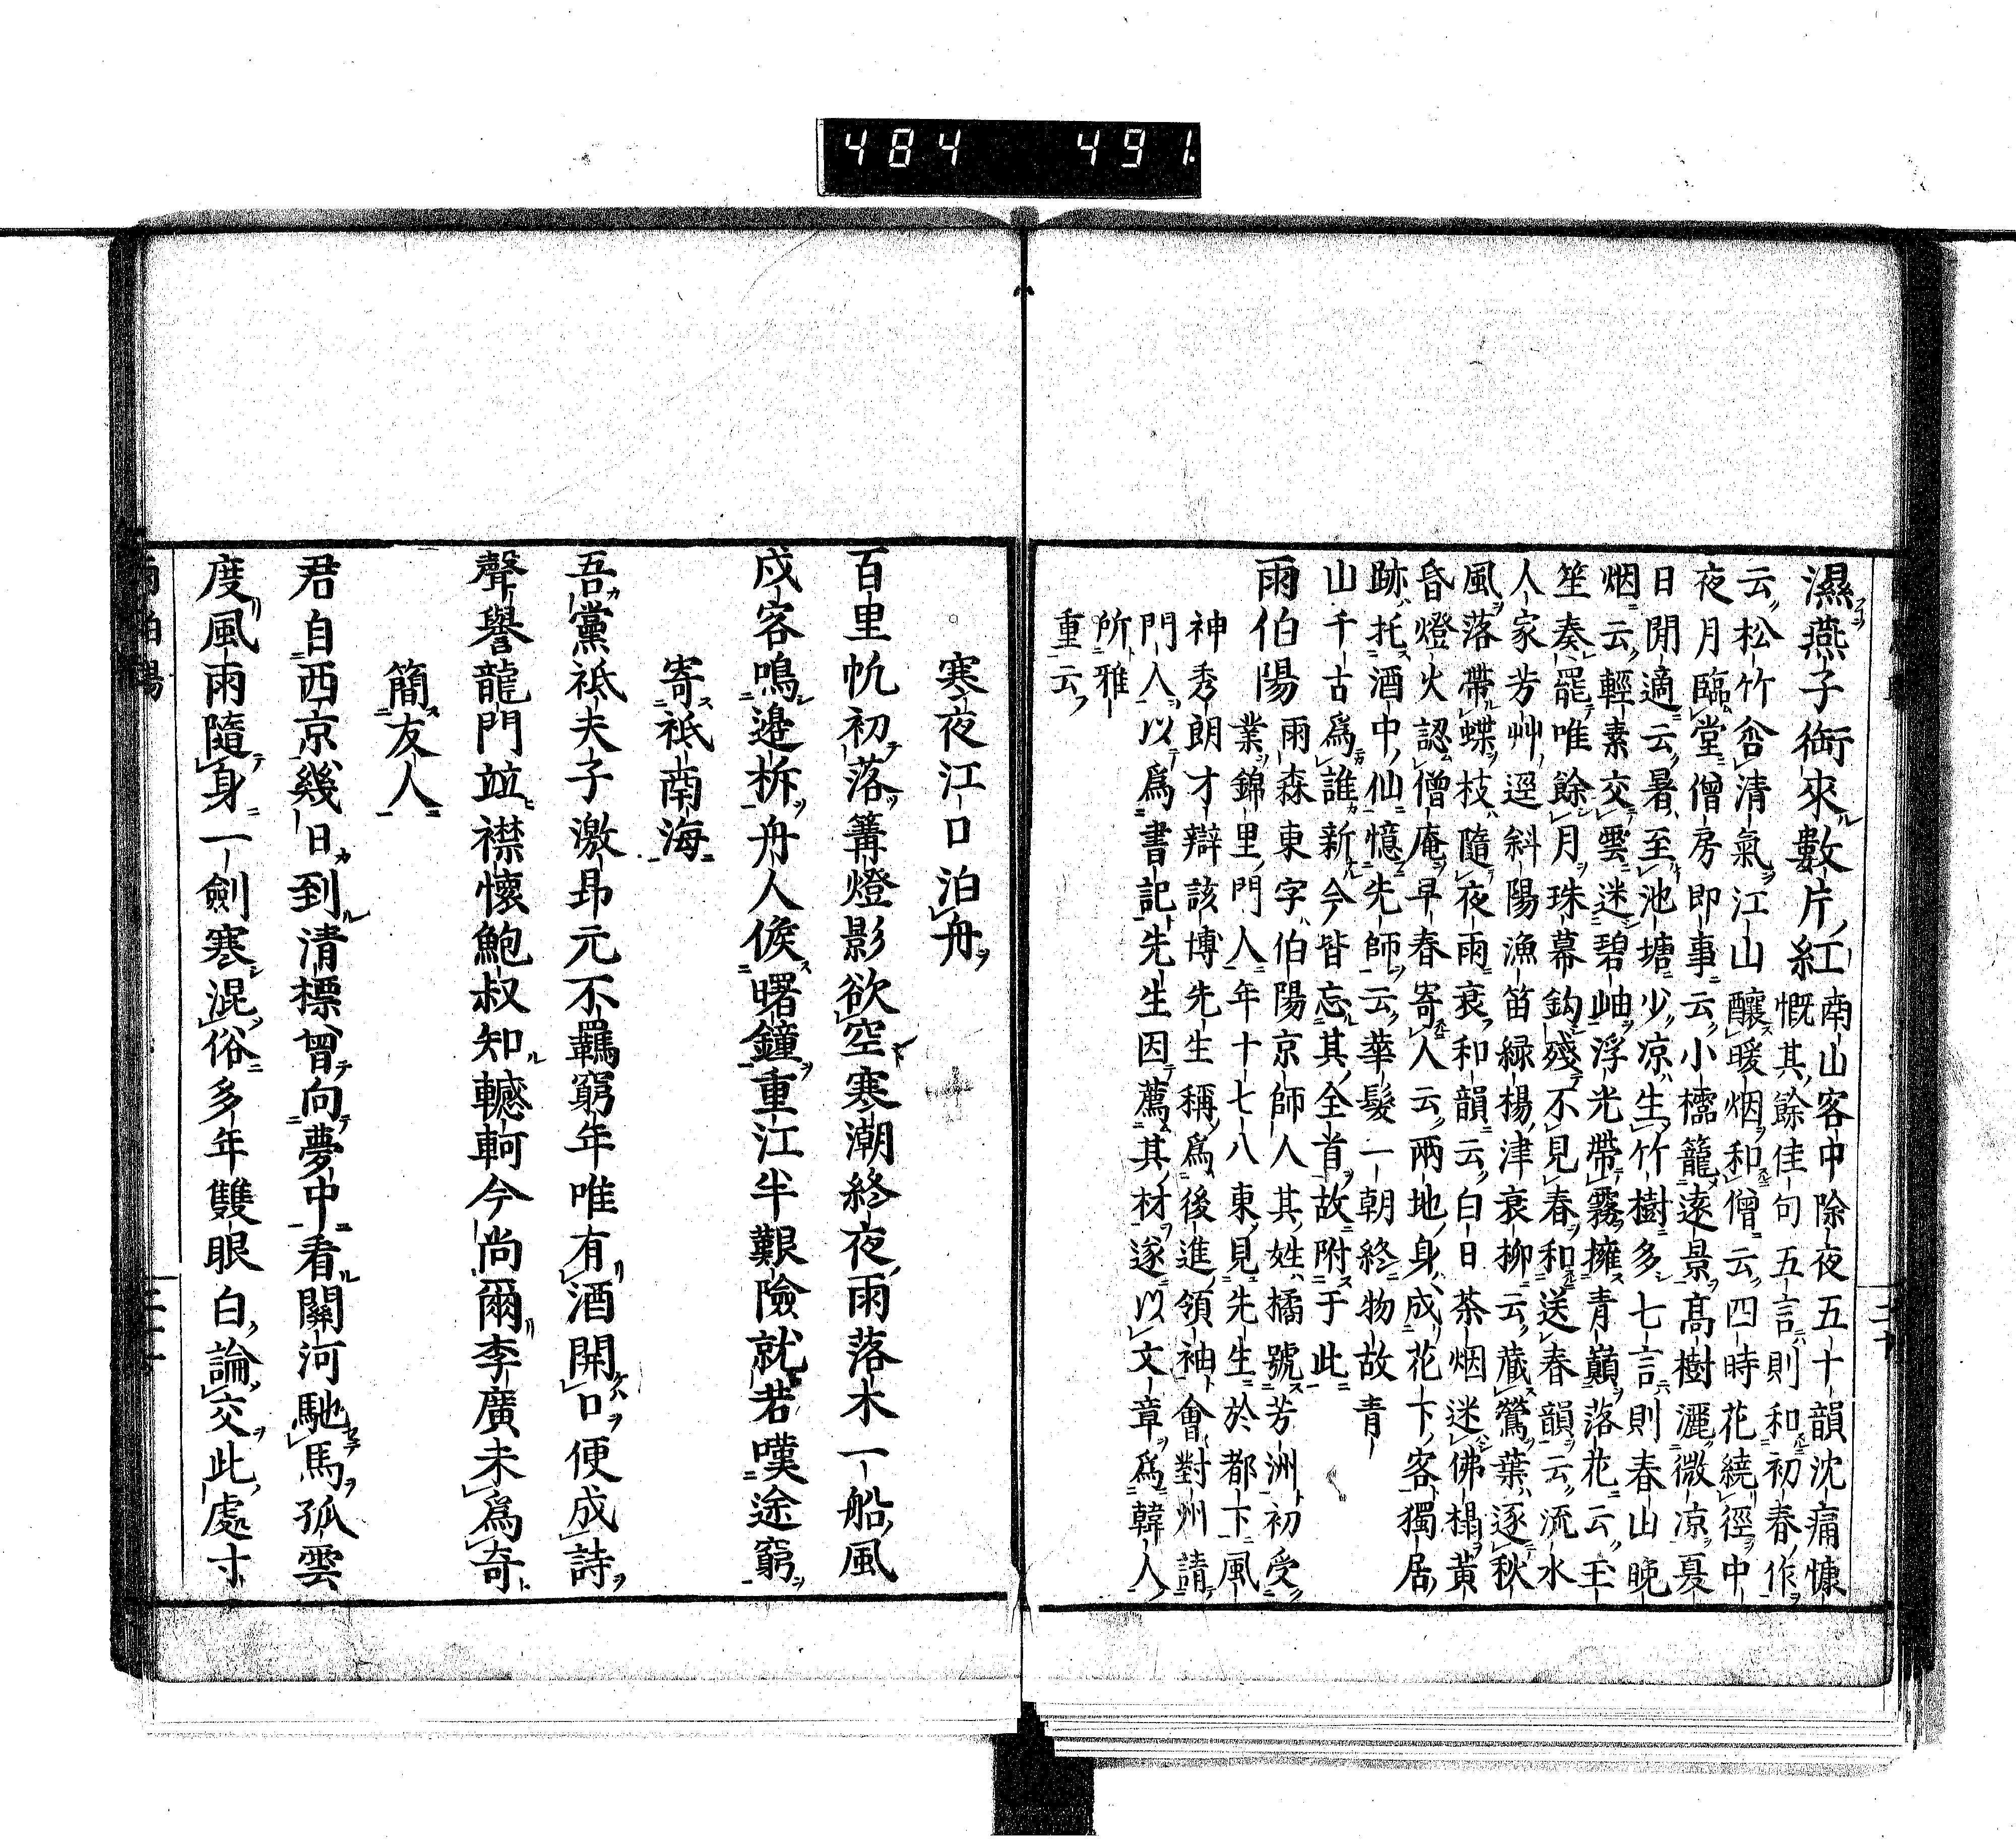 484 491
濕燕子銜來數片紅南山客中除夜五十韻沈痛慷
慨其餘佳句五言則和初春作
云松竹含清氣江山釀暖烟和僧云四時花繞徑中
夜月臨堂僧房即事云小櫺籠遠景高樹灑微凉夏
日閒適云暑至池塘少凉生竹樹多七言則春山晚
烟云輕素交雲迷碧岫浮光帶霧擁青巓落花云玉
笙奏罷唯餘月珠幕鈎殘不見春和送春韻云流水
人家芳艸逕斜陽漁笛緑楊津衰柳云藏鶯葉逐秋
風落帶蝶枝隨夜雨衰和韻云白日茶烟迷佛榻黃
昏燈火認僧庵早春寄人云兩地身成花下客獨居
跡托酒中仙憶先師云華髮一朝終物故青
山千古爲誰新今皆忘其全首故附于此
雨伯陽
雨森東字伯陽京師人其姓橘號芳洲初受
業錦里門人年十七八東見先生於都下風
神秀朗才辯該博先生稱爲後進領袖會對州請
門人以爲書記先生因薦其材遂以文章爲韓人
所雅
重云
寒夜江口泊舟
百里帆初落篝燈影欲空寒潮終夜雨落木一船風
戍客鳴邉柝舟人候曙鐘重江半艱險就若嘆途窮
寄祗南海
吾黨祗夫子激昂元不羈窮年唯有酒開口便成詩
聲譽龍門竝襟懷鮑叔知轗軻今尚爾李廣未爲奇
簡友人
君自西京幾日到清標曾向夢中看關河馳馬孤雲
度風雨隨身一劍寒混俗多年雙眼白論交此處寸
雨伯陽